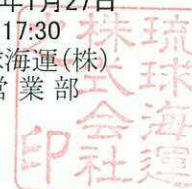 年1月27日
17:30
海運(株)
営業部
琉球海運
株式会社
印